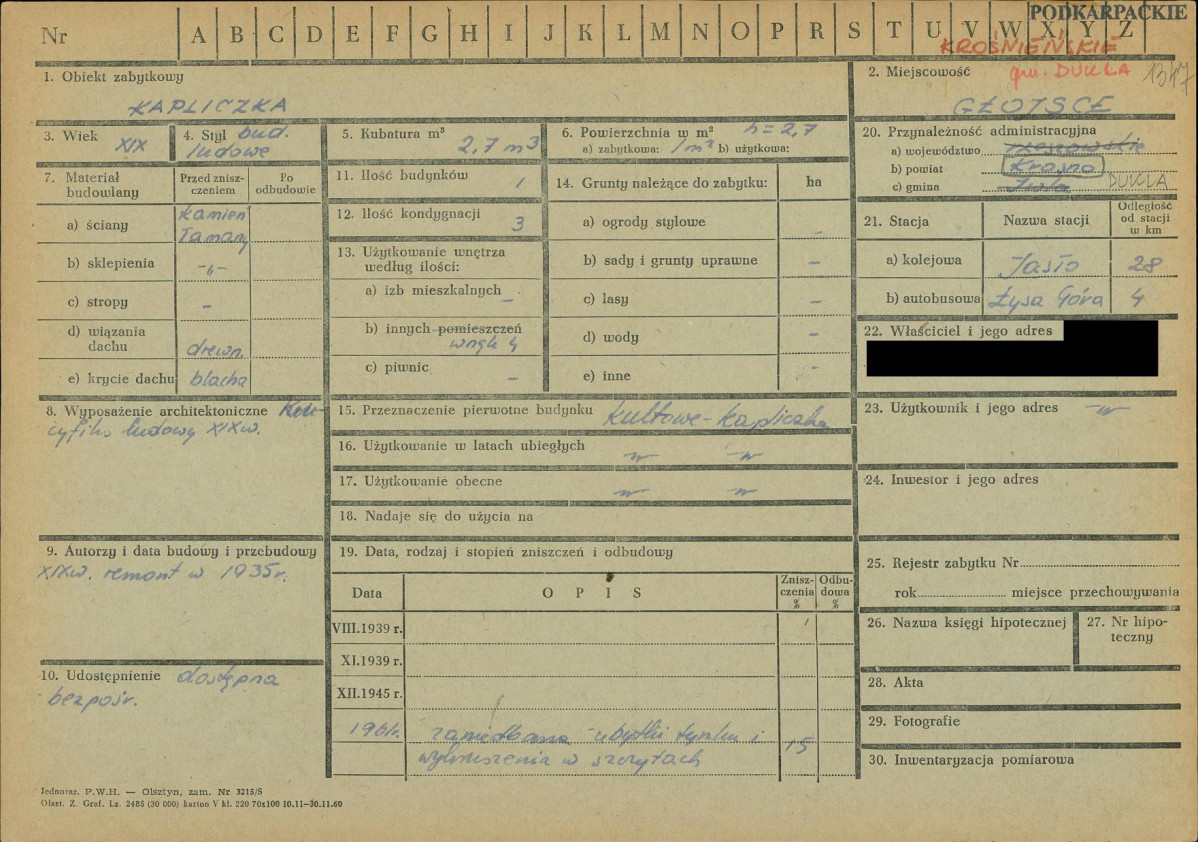 PODKARPACKIE
Nr A B C D E F G H I J K L M N O P R S T U V W X Y Z
KROŚNIEŃSKIE
gm. DUKLA 1347
1. Obiekt zabytkowy
KAPLICZKA
2. Miejscowość
GŁOJSCE
3. Wiek XIX
4. Styl bud. ludowe
5. Kubatura m³ 2,7 m3
6. Powierzchnia w m² h = 2,7
a) zabytkowa: 1 m² b) użytkowa:
20. Przynależność administracyjna
a) województwo rzeszowskie
b) powiat Krosno
c) gmina DUKLA
7. Materiał budowlany
Przed zniszczeniem
Po odbudowie
a) ściany kamień łamany
b) sklepienia -"-
c) stropy -
d) wiązania dachu drewn.
e) krycie dachu blacha
11. Ilość budynków 1
12. Ilość kondygnacji 3
13. Użytkowanie wnętrza według ilości:
a) izb mieszkalnych -
b) innych pomieszczeń wnęk 4
c) piwnic -
14. Grunty należące do zabytku: ha
a) ogrody stylowe -
b) sady i grunty uprawne -
c) lasy -
d) wody -
e) inne -
21. Stacja Nazwa stacji Odległość od stacji w km
a) kolejowa Jasło 28
b) autobusowa Łysa Góra 4
22. Właściciel i jego adres
8. Wyposażenie architektoniczne Kru-
cyfiks ludowy XIXw.
15. Przeznaczenie pierwotne budynku kultowe - kapliczka
16. Użytkowanie w latach ubiegłych -"- -"-
17. Użytkowanie obecne -"- -"-
18. Nadaje się do użycia na
23. Użytkownik i jego adres -"-
24. Inwestor i jego adres
9. Autorzy i data budowy i przebudowy
XIXw. remont w 1935r.
19. Data, rodzaj i stopień zniszczeń i odbudowy
Data OPIS Zniszczenia % Odbudowa %
VIII.1939 r.
XI.1939 r.
XII.1945 r.
1961r. zaniedbana - ubytki tynku i
wykruszenia w szczytach 15
25. Rejestr zabytku Nr
rok miejsce przechowywania
26. Nazwa księgi hipotecznej
27. Nr hipoteczny
10. Udostępnienie dostępna
bezpośr.
28. Akta
29. Fotografie
30. Inwentaryzacja pomiarowa
Jednoraz. P.W.H. — Olsztyn, zam. Nr 3215/S
Olszt. Z. Graf. Lz. 2485 (30 000) karton V kl. 220 70x100 10.11—30.11.60